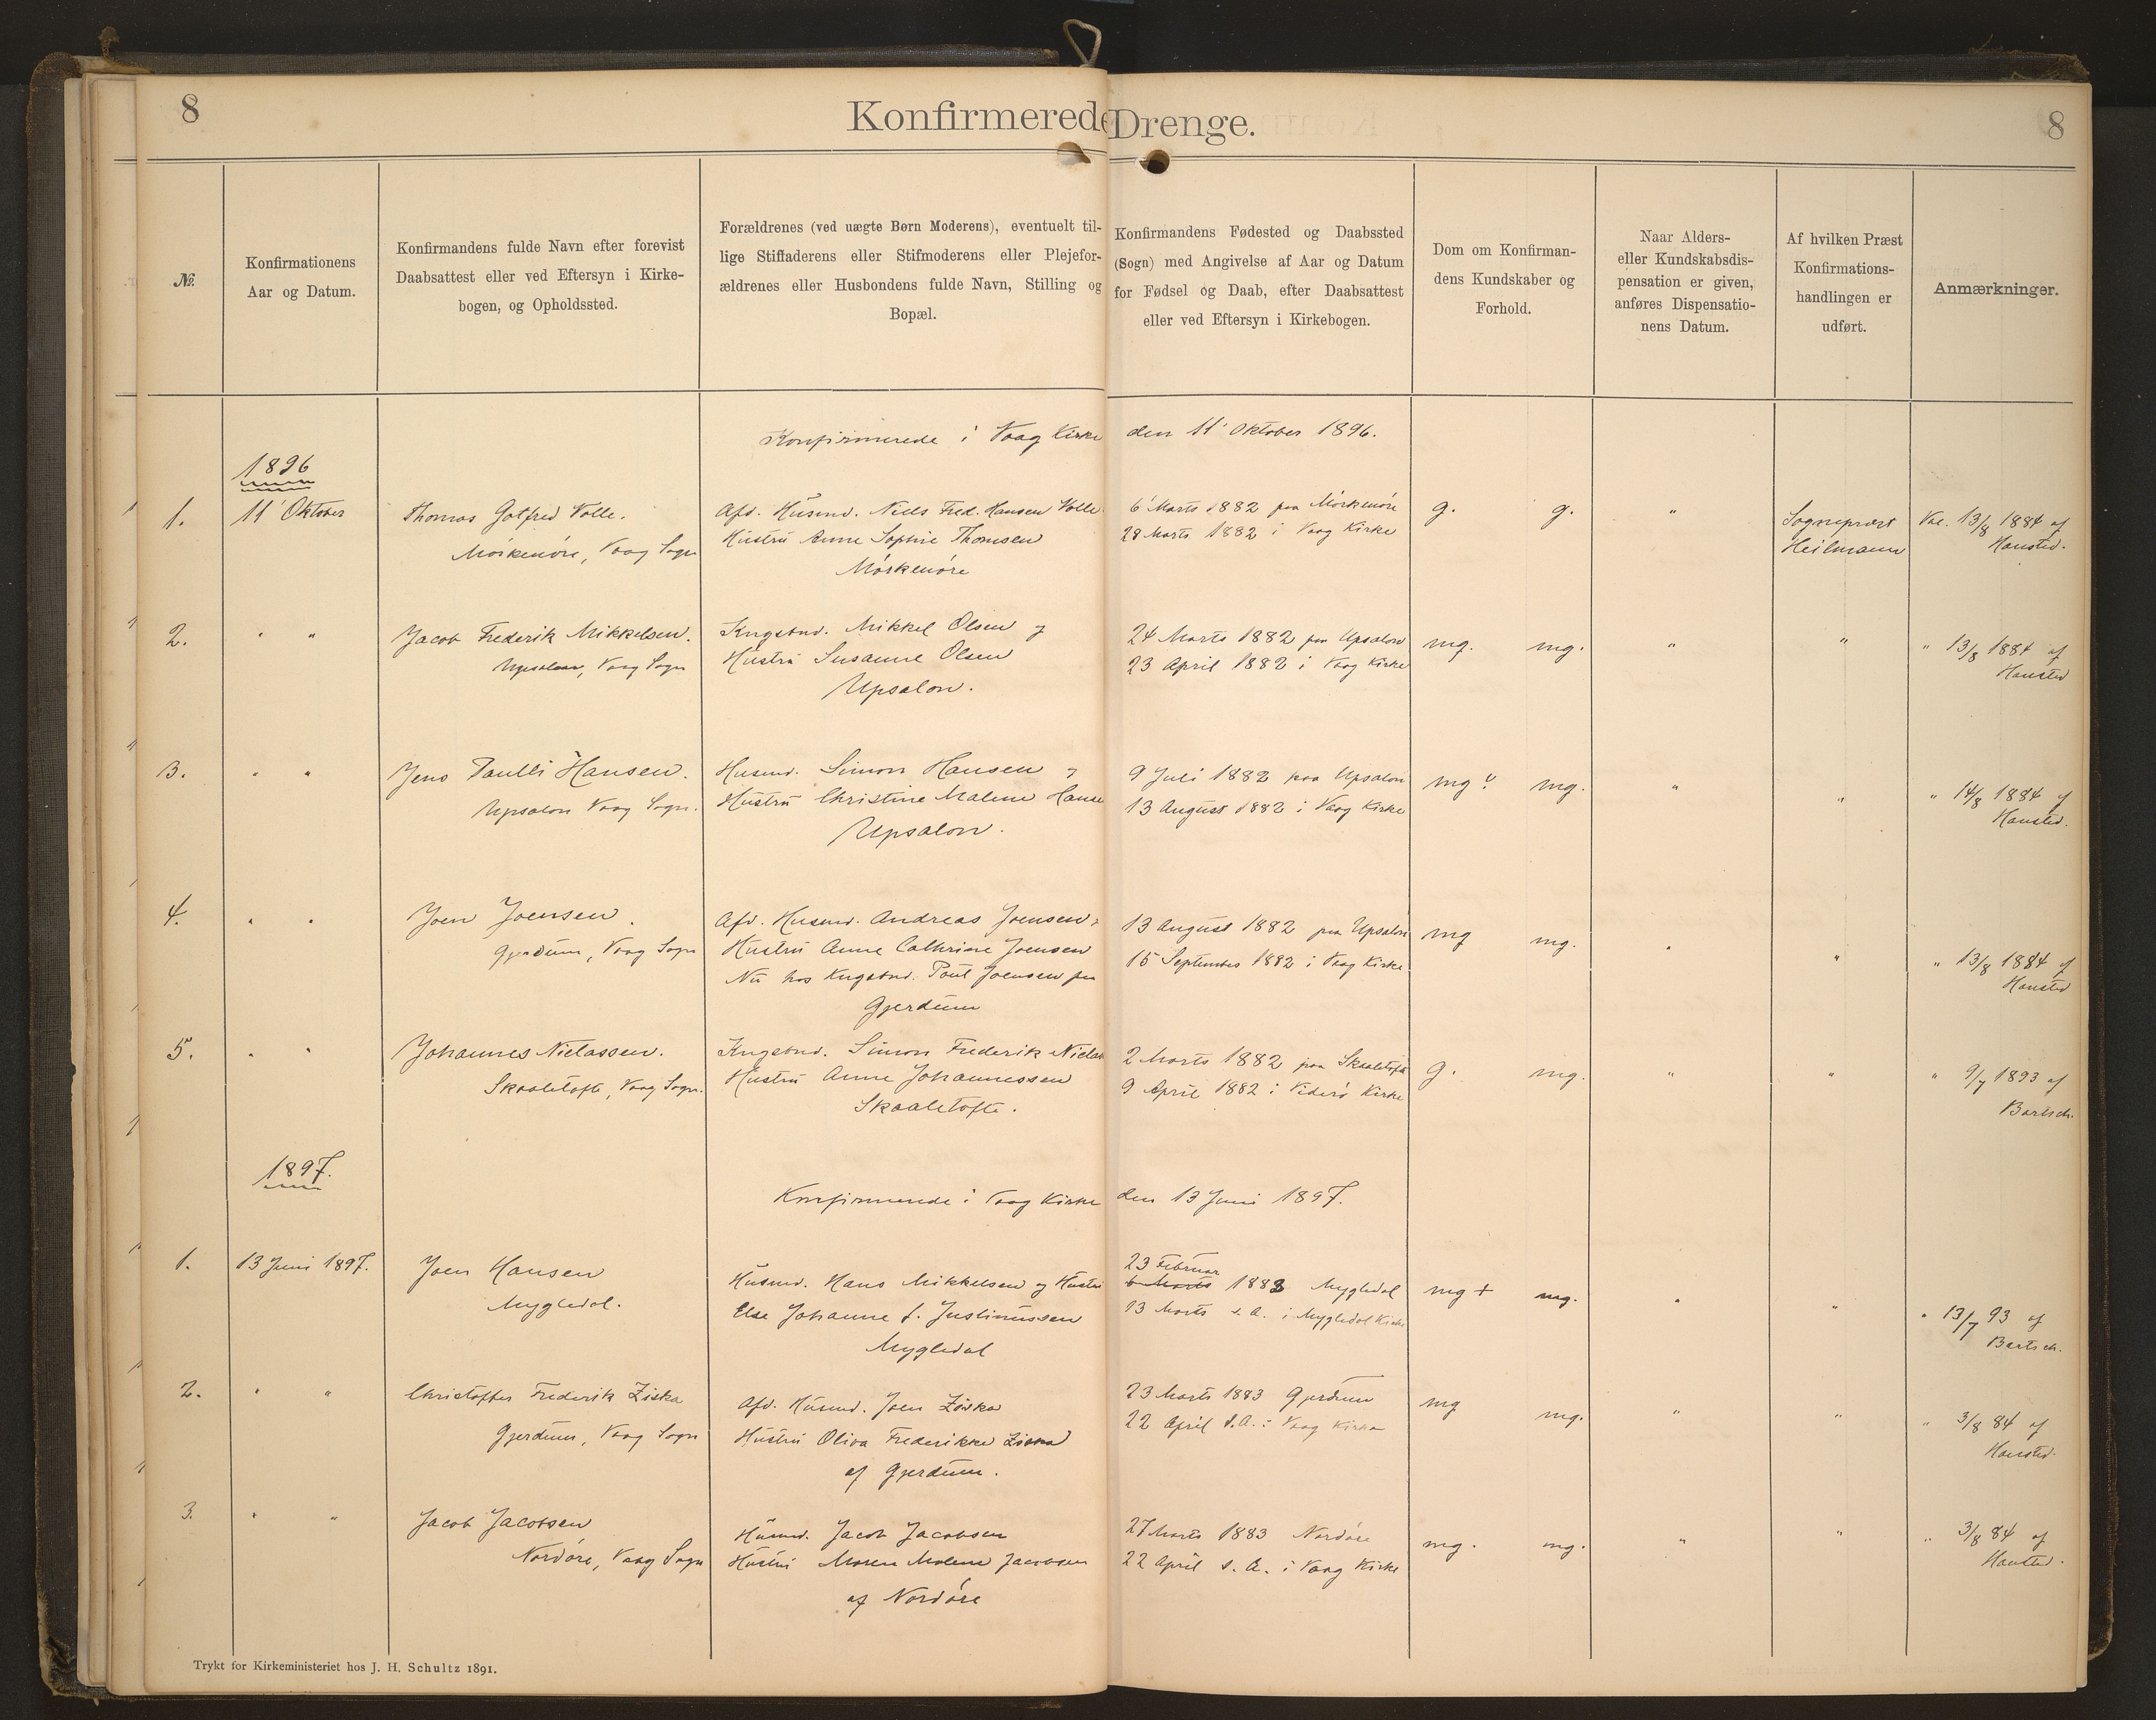 8
Konfirmerede Drenge.
8
№
Konfirmationens
Aar og Datum.
Konfirmandens fulde Navn efter forevist
Daabsattest eller ved Eftersyn i Kirke-
bogen, og Opholdssted.
Forældrenes (ved uægte Børn Moderens), eventuelt til-
lige Stiffaderens eller Stifmoderens eller Plejefor-
ældrenes eller Husbondens fulde Navn, Stilling og
Bopæl.
Konfirmandens Fødested og Daabssted
(Sogn) med Angivelse af Aar og Datum
for Fødsel og Daab, efter Daabsattest
eller ved Eftersyn i Kirkebogen.
Dom om Konfirman-
dens Kundskaber og
Forhold.
Naar Alders-
eller Kundskabsdis-
pensation er given,
anføres Dispensatio-
nens Datum.
Af hvilken Præst
Konfirmations-
handlingen er
udført.
Anmærkninger.
Konfirmerede i Vaag Kirke den 11' Oktober 1896.
1896
1.
11' Oktober
Thomas Gotfred Volle.
Mórkenóre, Vaag Sogn
Afd. Husmd. Niels Fred. Hansen Volle
Hustru Anne Sophie Thomsen
Mórkenóre
6' Marts 1882 paa Mórkenóre
28 Marts 1882 i Vaag Kirke
g. g.
"
Sognepræst
Heilmann
Vac. 13/8 1884 af
Hansted.
2.
" "
Jacob Frederik Mikkelsen.
Upsalon, Vaag Sogn
Kngsbnd. Mikkel Olsen og
Hustru Susanne Olsen
Upsalon.
24 Marts 1882 paa Upsalon
23 April 1882 i Vaag Kirke
mg. mg.
"
"
" 13/8 1884 af
Hansted
3.
" "
Jens Paulli Hansen.
Upsalon Vaag Sogn.
Husmd. Simon Hansen og
Hustru Christine Malene Hanse
Upsalon.
9 Juli 1882 paa Upsalon
13 August 1882 i Vaag Kirke
mg mg.
"
"
" 14/8 1884 af
Hansted.
4.
" "
Joen Joensen.
Gjerdum, Vaag Sogn
Afd. Husmd. Andreas Joensen,
Hustru Anne Cathrine Joensen
Nu hos Kngsbnd. Poul Joensen paa
Gjerdum
13 August 1882 paa Upsalon
15 September 1882 i Vaag Kirke
mg mg.
"
"
" 13/8 1884 af
Hansted
5.
" "
Johannes Nielassen.
Skaaletofte, Vaag Sogn.
Kngsbnd. Simon Frederik Nielas
Hustru Anne Johannessen
Skaaletofte.
2 Marts 1882 paa Skaaletofte
9 April 1882 i Viderø Kirke
g. mg.
"
"
" 9/7 1893 af
Bartsch.
1897.
Konfirmerede i Vaag Kirke den 13 Juni 1897.
1.
13 Juni 1897.
Joen Hansen
Mygledal.
Husmd. Hans Mikkelsen og Hustru
Else Johanne f. Justinussen
Mygledal
23 Februar
6 Marts 1883 Mygledal
13 Marts s. A. i Mygledal Kirke
mg + mg.
"
"
" 13/7 93 af
Bartsch.
2.
" "
Christoffer Frederik Ziska
Gjerdum, Vaag Sogn
Afd. Husmd. Joen Ziska
Hustru Oliva Frederikke Ziska
af Gjerdum.
23 Marts 1883 Gjerdum
22 April s.A. i Vaag Kirke
mg mg.
"
"
" 3/8 84 af
Hansted.
3.
" "
Jacob Jacobsen
Nordóre, Vaag Sogn
Husmd. Jacob Jacobsen
Hustru Maren Malene Jacobsen
af Nordóre
27 Marts 1883 Nordóre
22 April s. A. i Vaag Kirke
mg. mg.
"
"
" 3/8 84 af
Hansted.
Trykt for Kirkeministeriet hos J. H. Schultz 1891.